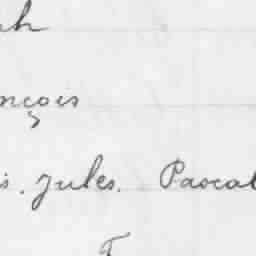 ph
nçois
is. Jules. Pascal
T